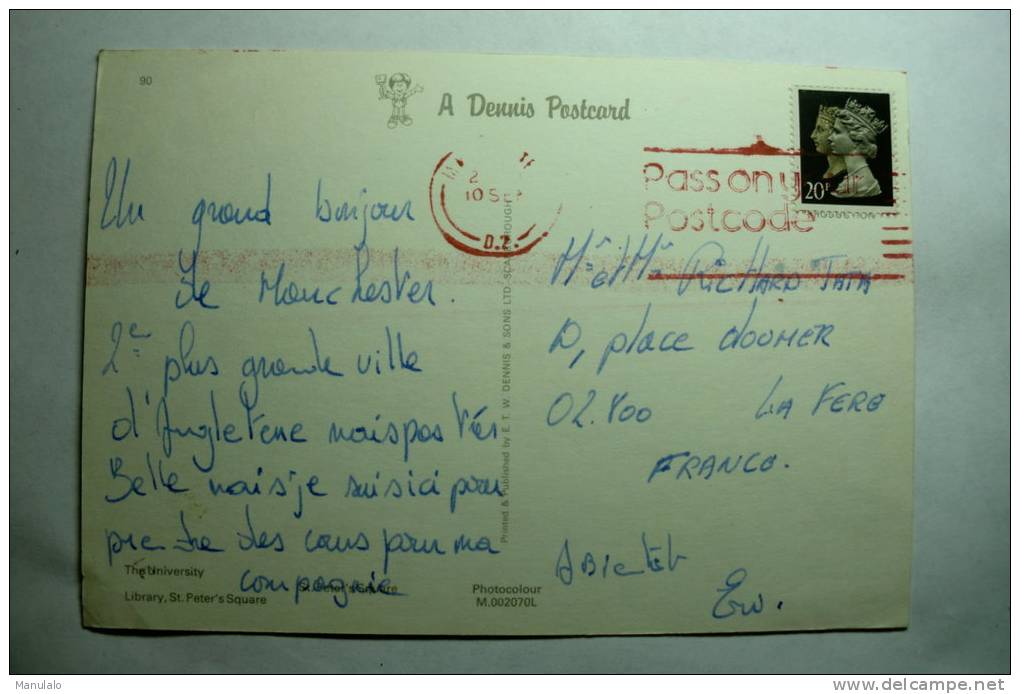 90
A Dennis Postcard
10 SE
D.Z.
Pass on y
Postcode
20P
Un grand bonjour
de Manchester.
2e plus grande ville
d'Angleterre mais pas très
Belle mais je suis ici pour
prendre des cours pour ma
compagnie
Mr et Mme RICHARD
place doumer
02.800 LA FERE
FRANCE.
A Bientôt
Printed & Published by E. T. W. DENNIS & SONS LTD. SCARBOROUGH
The University
Library, St. Peter's Square
St. Peter's Square
Photocolour
M.002070L
Manulalo
www.delcampe.net